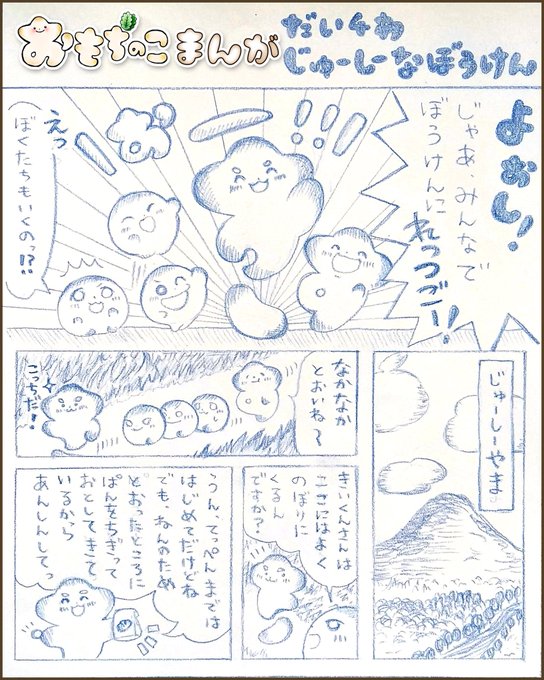 おもちのこまんが
だい4わ
じゅーしーなぼうけん
よおし!
じゃあ、みんなで
ぼうけんに
れっつごー!!
えっ
ぼくたちもいくのっ!?
じゅーしーやま
なかなか
とおいね〜
こっちだ!
きいくんさんは
ここにはよく
のぼりに
くるん
ですか?
うん、てっぺんまでは
はじめてだけどね
でも、ねんのため
とおったところに
ぱんをちぎって
おとしてきて
いるから
あんしんしてっ